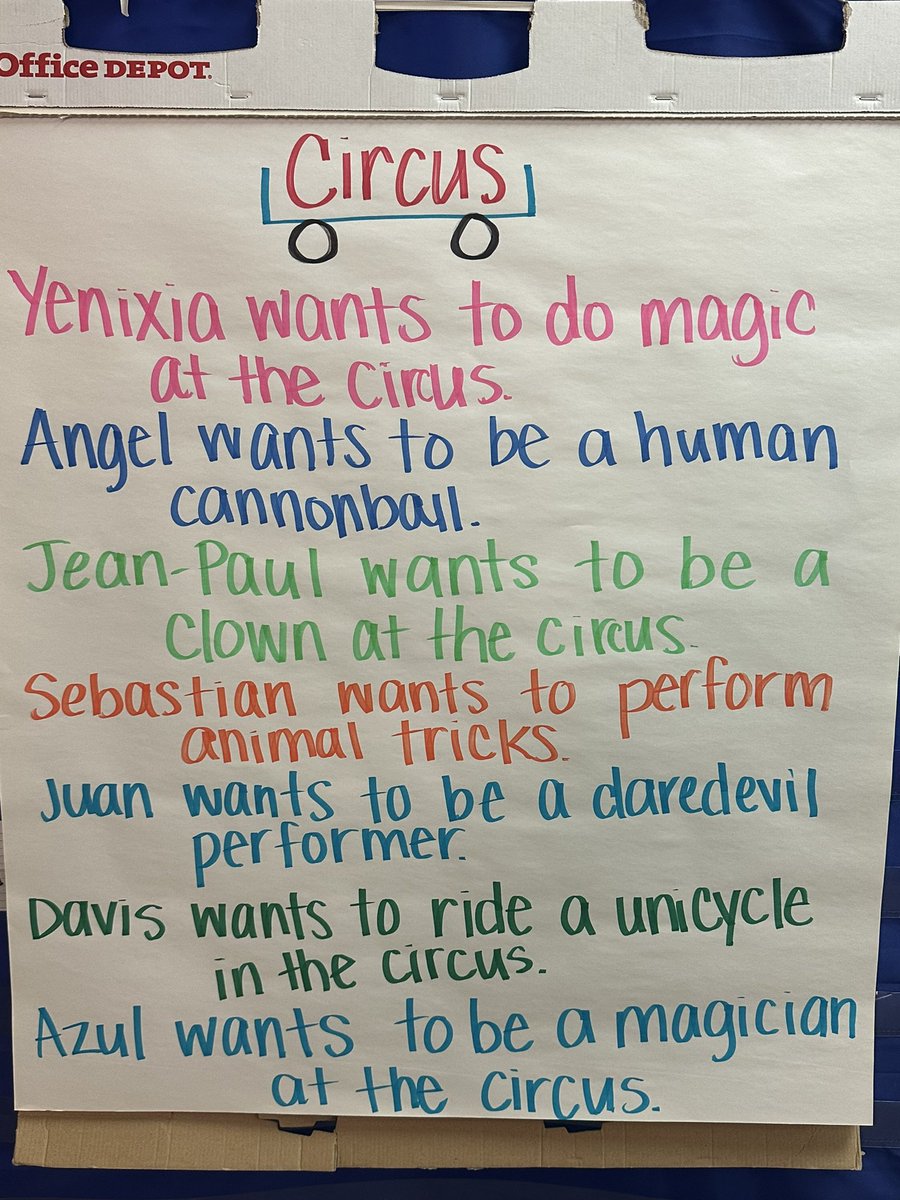 Office DEPOT.
Circus
Yenixia wants to do magic
at the circus.
Angel wants to be a human
cannonball.
Jean-Paul wants to be a
clown at the circus.
Sebastian wants to perform
animal tricks.
Juan wants to be a daredevil
performer.
Davis wants to ride a unicycle
in the circus.
Azul wants to be a magician
at the circus.